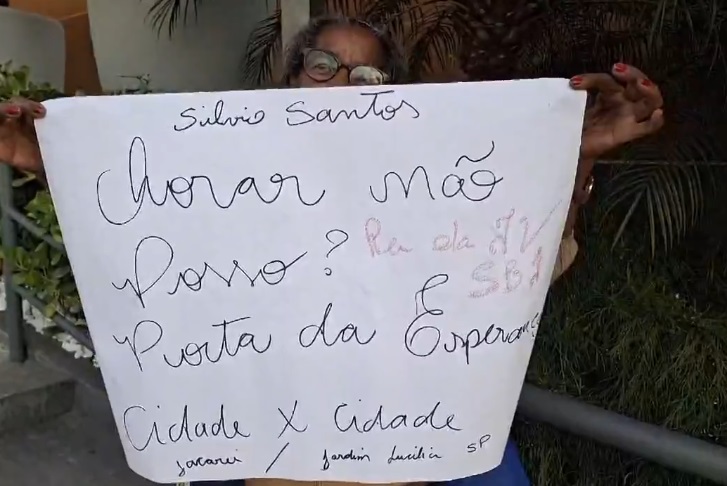 Silvio Santos
Chorar não
Posso? Rei da TV
SBT
Porta da Esperança
Cidade X Cidade
Jacarei / Jardim Lucilia SP